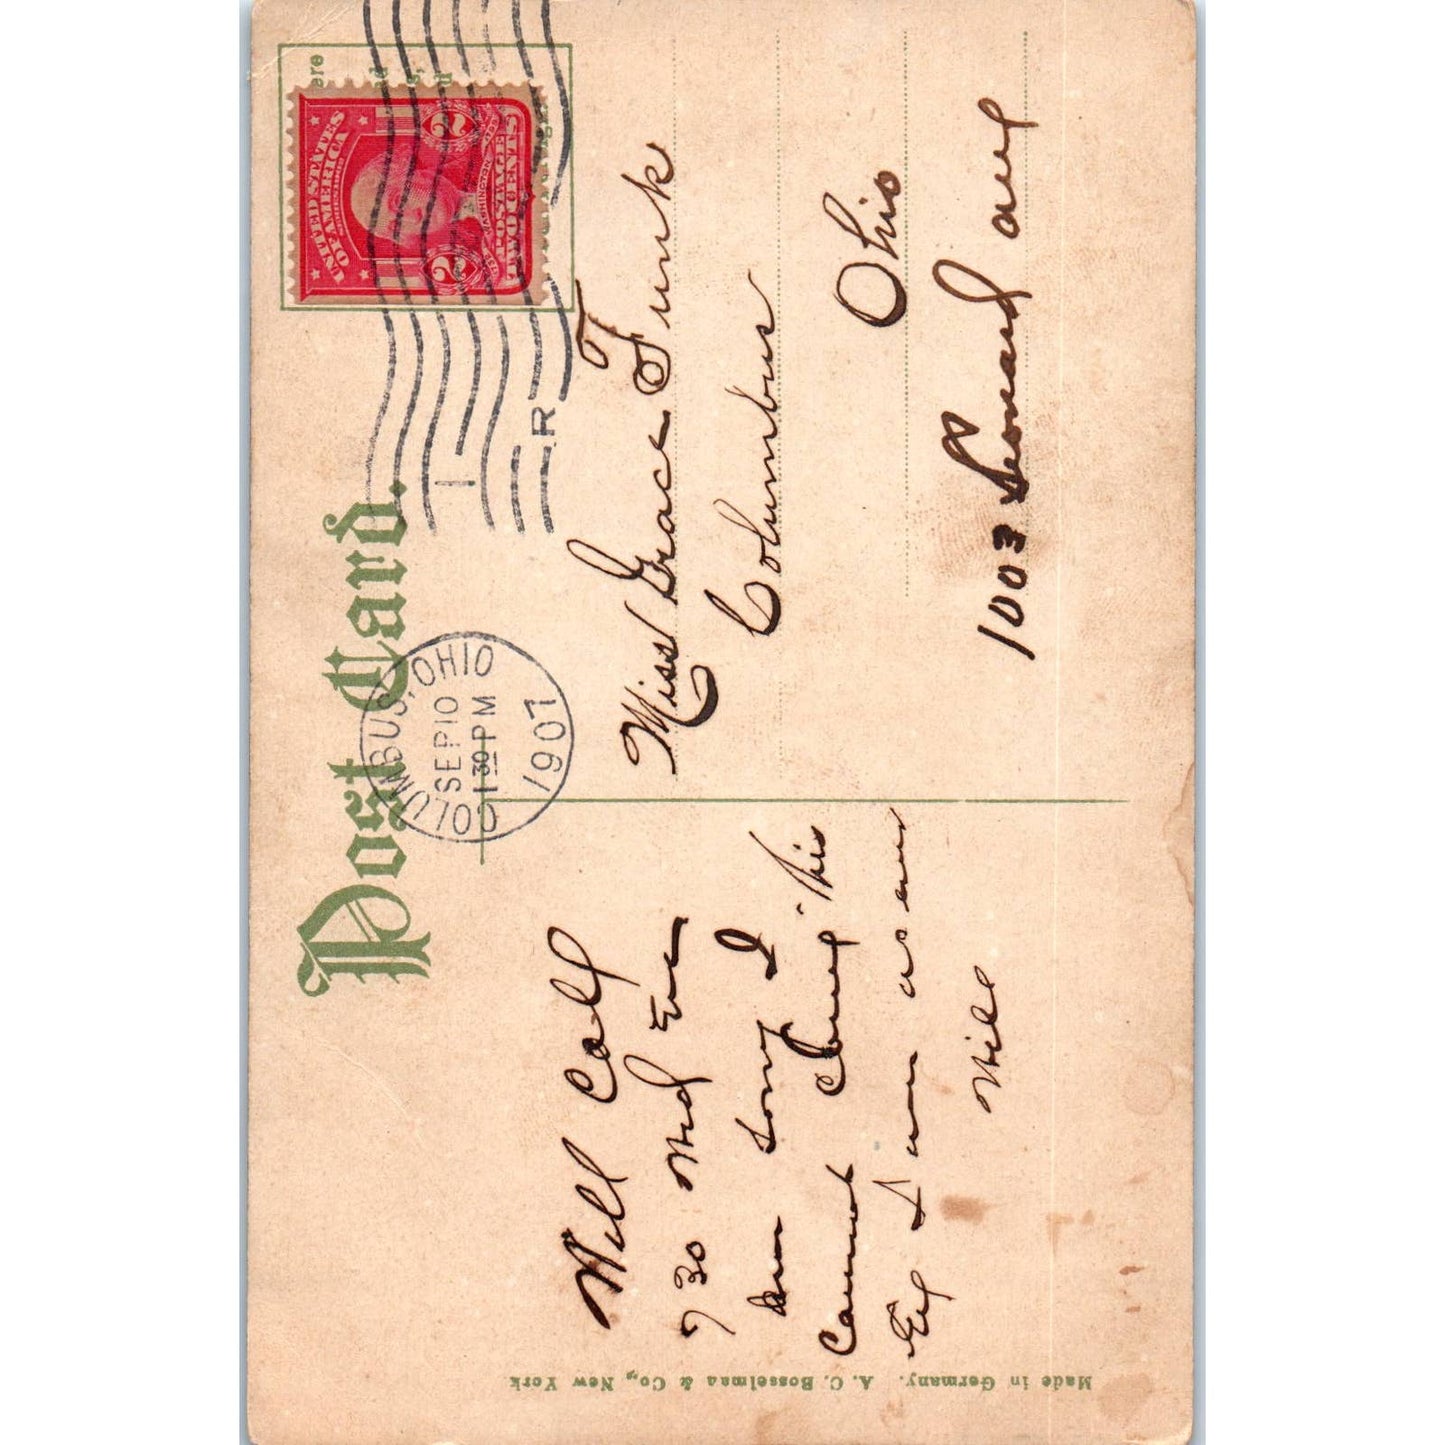 Post Card.
COLUMBUS, OHIO
SEP 10
1 30 PM
1907
1
R
UNITED STATES
OF AMERICA
2 2
WASHINGTON
POSTAGE
TWO CENTS
Miss Grace Funk
Columbus
Ohio
1003 Leonard ave
Will call
730 Wed Eve
am sorry I
cannot come this
Eve I am as ever
Will
Made in Germany. A. C. Bosselman & Co., New York